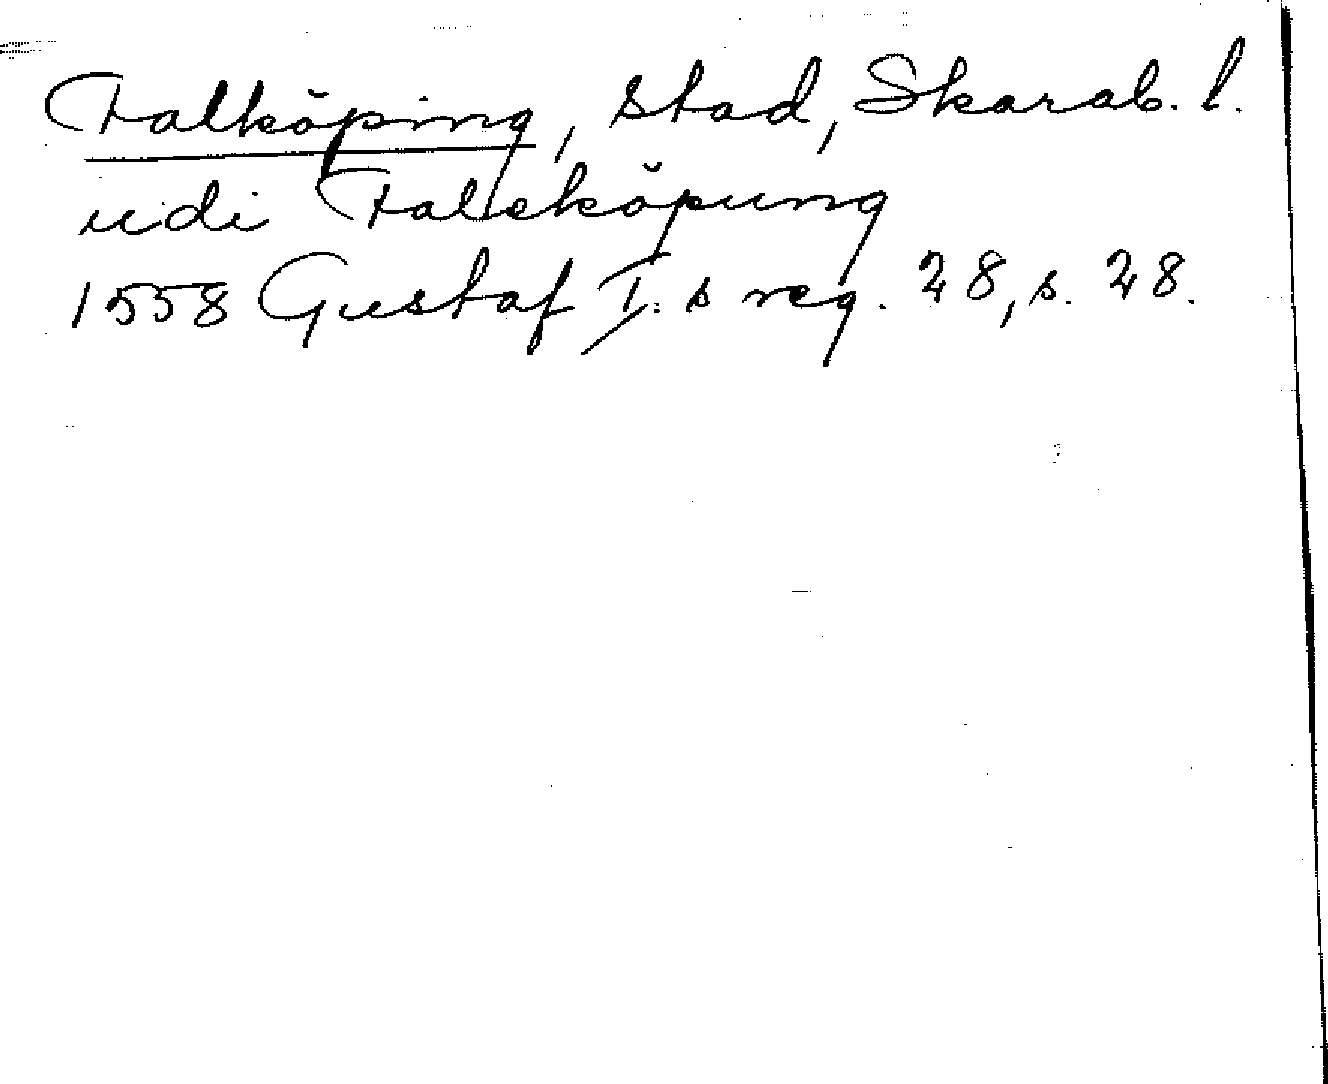 Falköping, stad, Skarab. l.
udi Faleköpung
1558 Gustaf I:s reg. 28, s. 28.